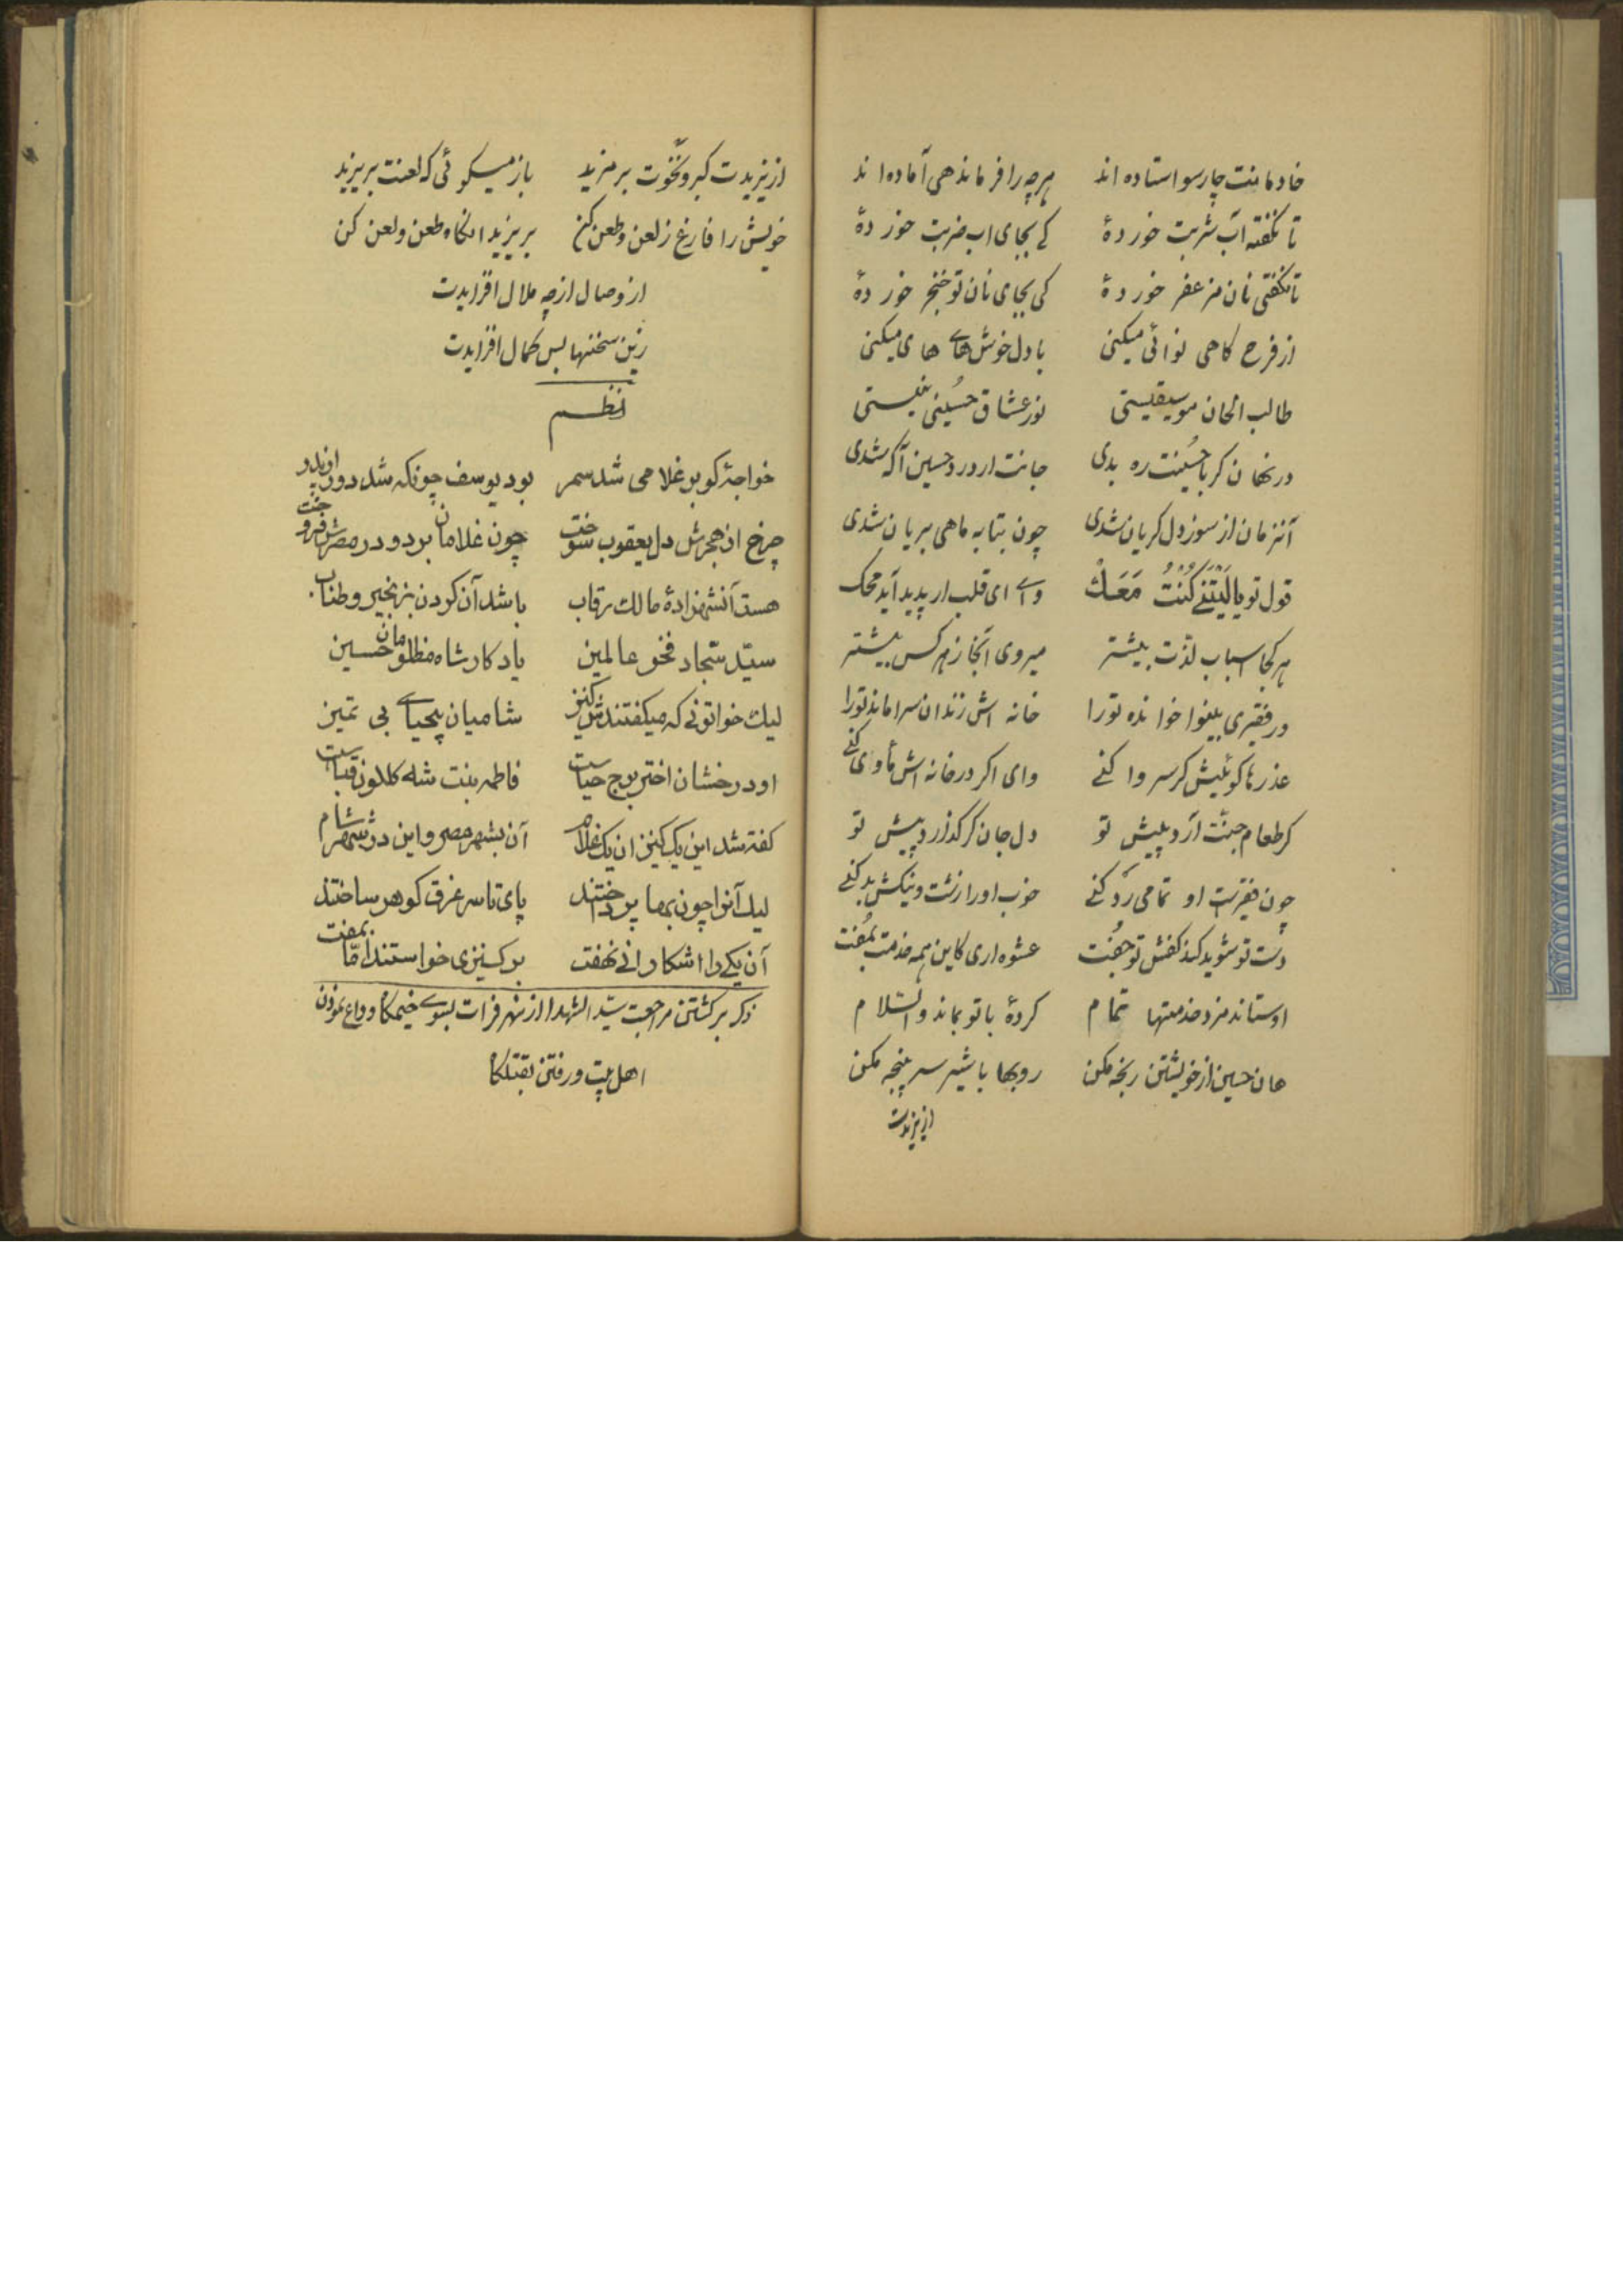 خادمانت چارسو استاده اند هرچه را فرماندهی آماده اند
تا نکفته آب شربت خوردهٔ کے بجای اب ضربت خوردهٔ
تا نکفتی نان مزعفر خوردهٔ کی بجای نان تو خنجر خوردهٔ
از فرح کاهی نوائی میکنی با دل خوش هاے های میکنی
طالب الحان موسیقیستی نور عشاق حسینی نیستی
در نهان کر با حسینت ره بدی جانت از درد حسین آکه شدی
آنزمان از سوز دل کریان شدی چون بتابه ماهی بریان شدی
قول تو یا لَیْتَنے کُنْتُ مَعَكْ واے ای قلب ار پدید آید محک
هر کجا اسباب لذت بیشتر میروی آنجا ز هر کس پیشتر
ور فقیری بینوا خوانده تورا خانه اش زندان سرا ماند تورا
عذرها کوئیش کر سر وا کنے وای اکر در خانه اش مأوای کنے
کر طعام جنت آرد پیش تو دل جان کر کذارد پیش تو
چون فقیرست او تمامی رد کنے خوب او را زشت و نیکش بد کنے
دست تو شوید کند کفش تو جفت عشوه اری کاین همه خدمت بمفت
اوستاند مزد خدمتها تمام کردهٔ با تو بماند والسلام
هان حسین از خویشتن رنجه مکن روبها با شیر سر پنجه مکن
از یزیدت
از یزیدت کبر و نخوت بر مزید باز میکوئی که لعنت بر یزید
خویش را فارغ ز لعن و طعن کن بر یزید انکاه طعن و لعن کن
از وصال ازچه ملال افزایدت
زین سخنها بس کمال افزایدت
نظم
خواجهٔ کو بر غلامی شد سمر بود یوسف چونکه شد دور از پدر
چرخ از هجرش دل یعقوب سوخت چون غلامان برد و در مصرش فروخت
هست آنشهزادهٔ مالك رقاب باشد آن کردن بزنجیر و طناب
سیّد سجّاد فخر عالمین یادکار شاه مظلومان حسین
لیك خواتونے که میکفتندش کنیز شامیان بیحیاے بی تمیز
او درخشان اختر برج حیاست فاطمه بنت شه کلکون قباست
کفته شد این یک کنیز ان یک غلام آن بشهر مصر و این در شهر شام
لیك آنرا چون بها پرداختند پای تا سر غرق کوهر ساختند
آن یکے را اشکارا نے نهفت بر کنیزی خواستند امّا بمفت
ذکر برکشتن مراجعت سیّد الشهدا از نهر فرات بسوے خیمکاه و وداع نمودن
اهل بیت و رفتن بقتلکاه